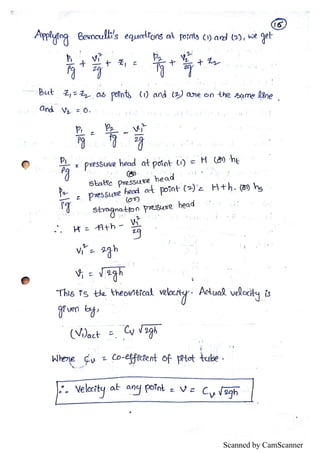 (15)
Applying Bernoulli's equations at points (1) and (2), we get
P₁/ρg + V₁²/2g + Z₁ = P₂/ρg + V₂²/2g + Z₂
But Z₁ = Z₂ as points (1) and (2) are on the same line,
and V₂ = 0.
P₁/ρg = P₂/ρg - V₁²/2g
P₁/ρg = pressure head at point (1) = H (or) ht
(or)
static pressure head
P₂/ρg = pressure head at point (2) = H+h. (or) hs
(or)
stragnation pressure head
∴ H = H+h - V₁²/2g
V₁² = 2gh
V₁ = √2gh
This is the theoritical velocity. Actual velocity is
given by,
(V₁)act = Cv √2gh
Where Cv = Co-efficient of pitot tube.
∴ Velocity at any point = V = Cv √2gh
Scanned by CamScanner